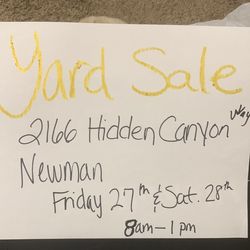 Yard Sale
2166 Hidden Canyon Way
Newman
Friday 27th & Sat. 28th
8am-1pm